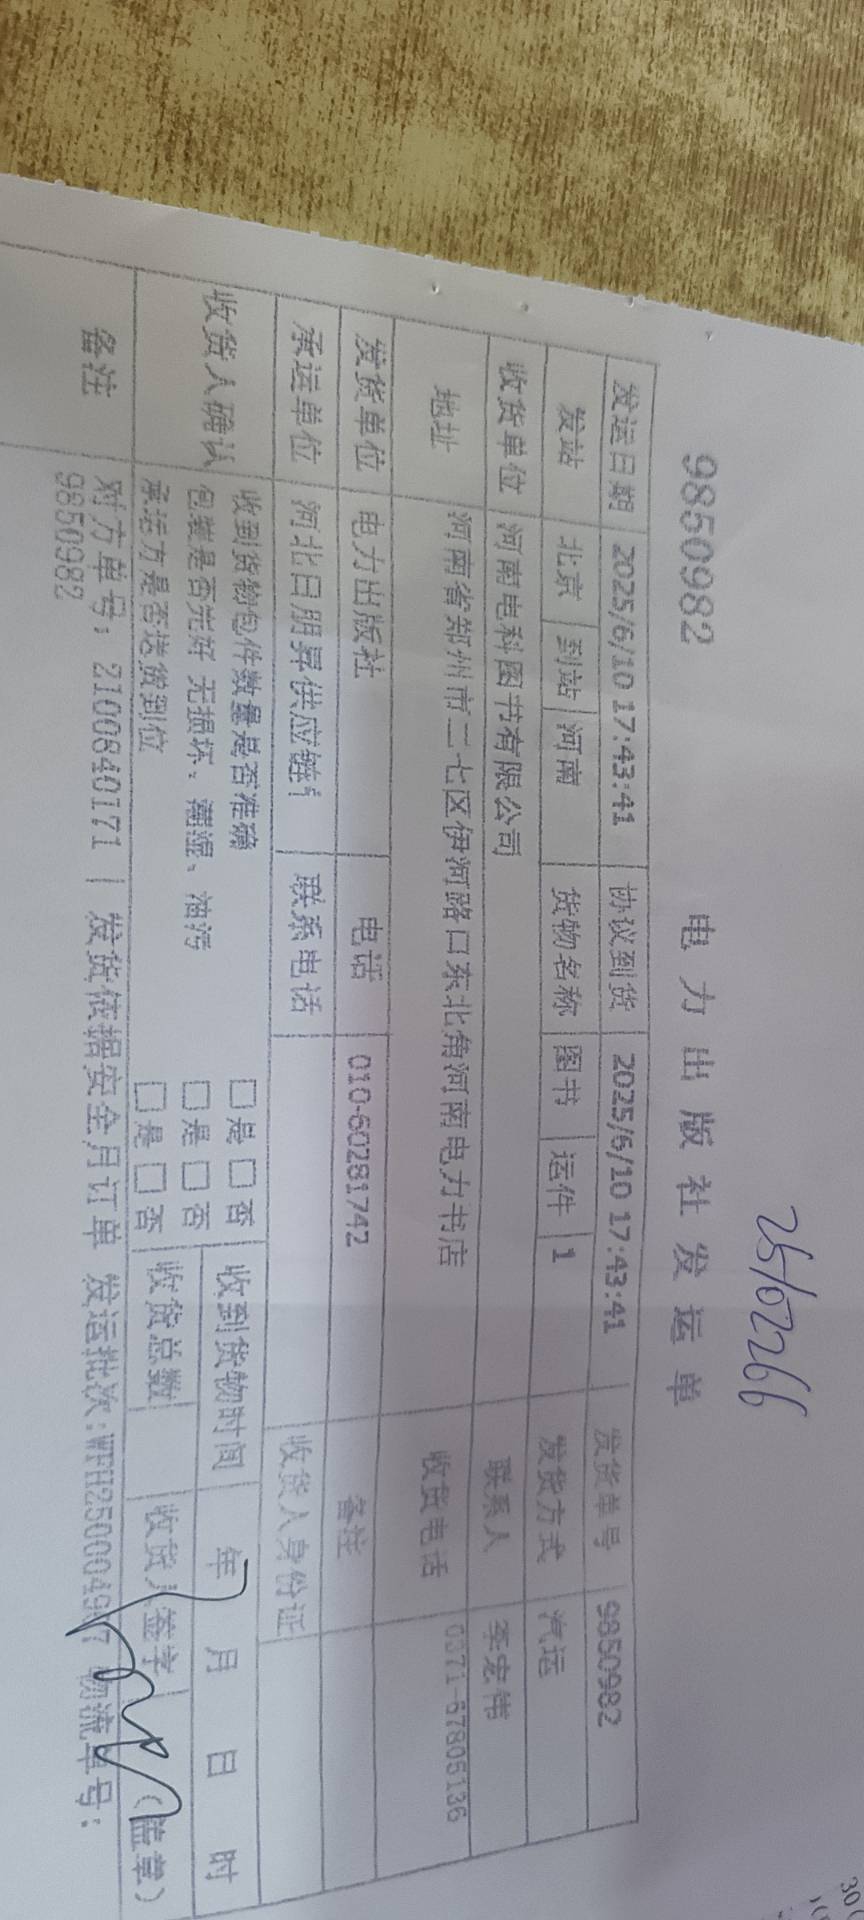 25102266
9850982 电力出版社发运单
发运日期 2025/6/10 17:43:41 协议到货 2025/6/10 17:43:41 发货单号 9850982
发站 北京 到站 河南 货物名称 图书 运件 1 发货方式 汽运
收货单位 河南电科图书有限公司 联系人 李宏伟
地址 河南省郑州市二七区伊河路口东北角河南电力书店 收货电话 0371-67805136
发货单位 电力出版社 电话 010-60281742 备注
承运单位 河北日朋昇供应链 联系电话 收货人身份证
收货人确认 收到货物包件数量是否准确 □是□否 收到货物时间 年 月 日 时
包装是否完好 无损坏、潮湿、油污 □是□否
承运方是否送货到位 □是□否 收货总数 收货人签字 (盖章)
备注 对方单号:2100840171 | 发货依据安全月订单 发运批次:WFH250004987 物流单号:
9850982
30